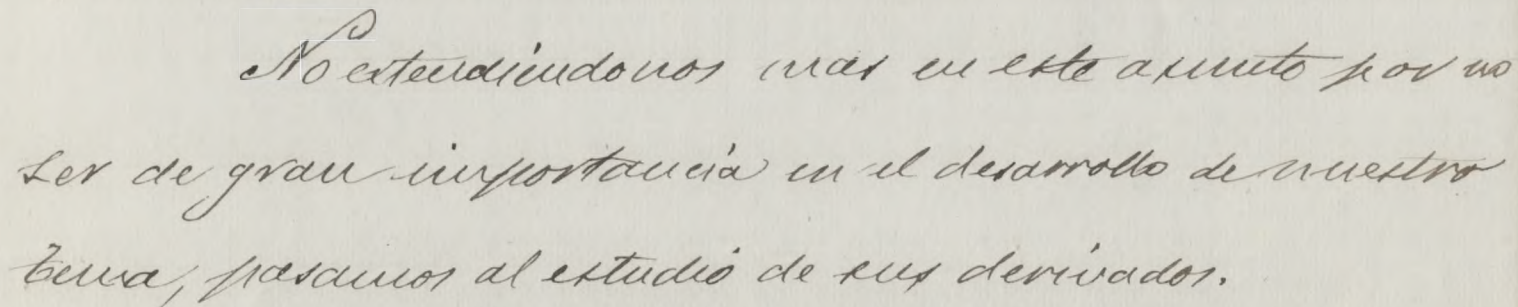 No extendiéndonos mas en este asunto por no
ser de gran importancia en el desarrollo de nuestro
tema, pasamos al estudio de sus derivados.